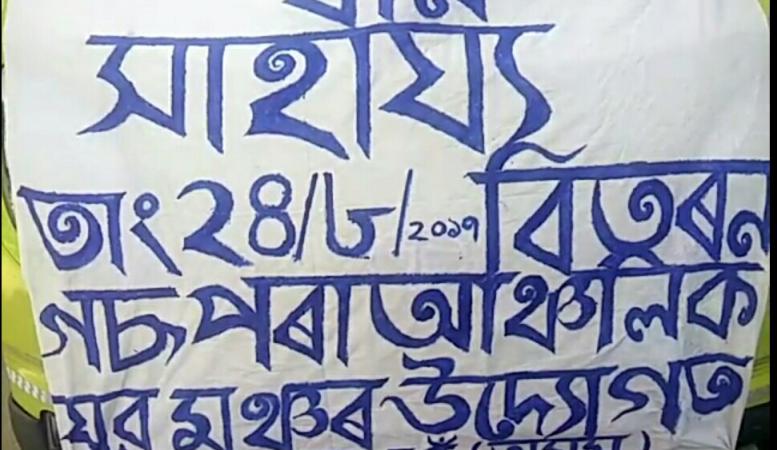 সাহায্য
তাং ২৪/৮/২০১৭ বিতৰন
গচপৰা আঞ্চলিক
যুৱ মঞ্চৰ উদ্যোগত